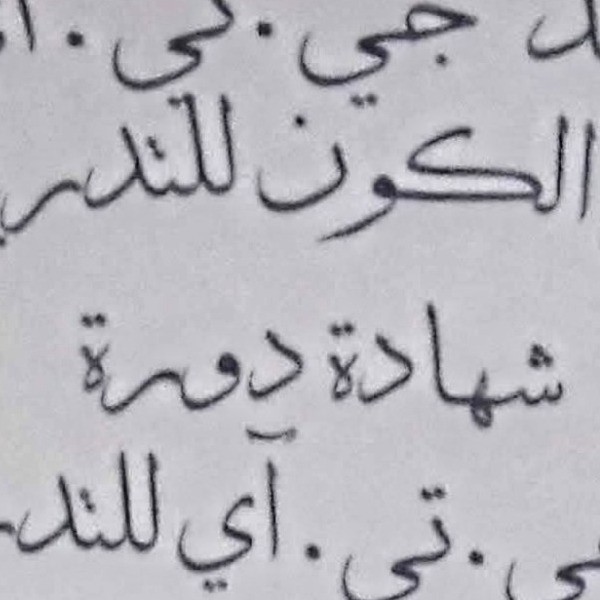 جي . تي .
الكون للتدر
شهادة دورة
ي . تي . آي للتد